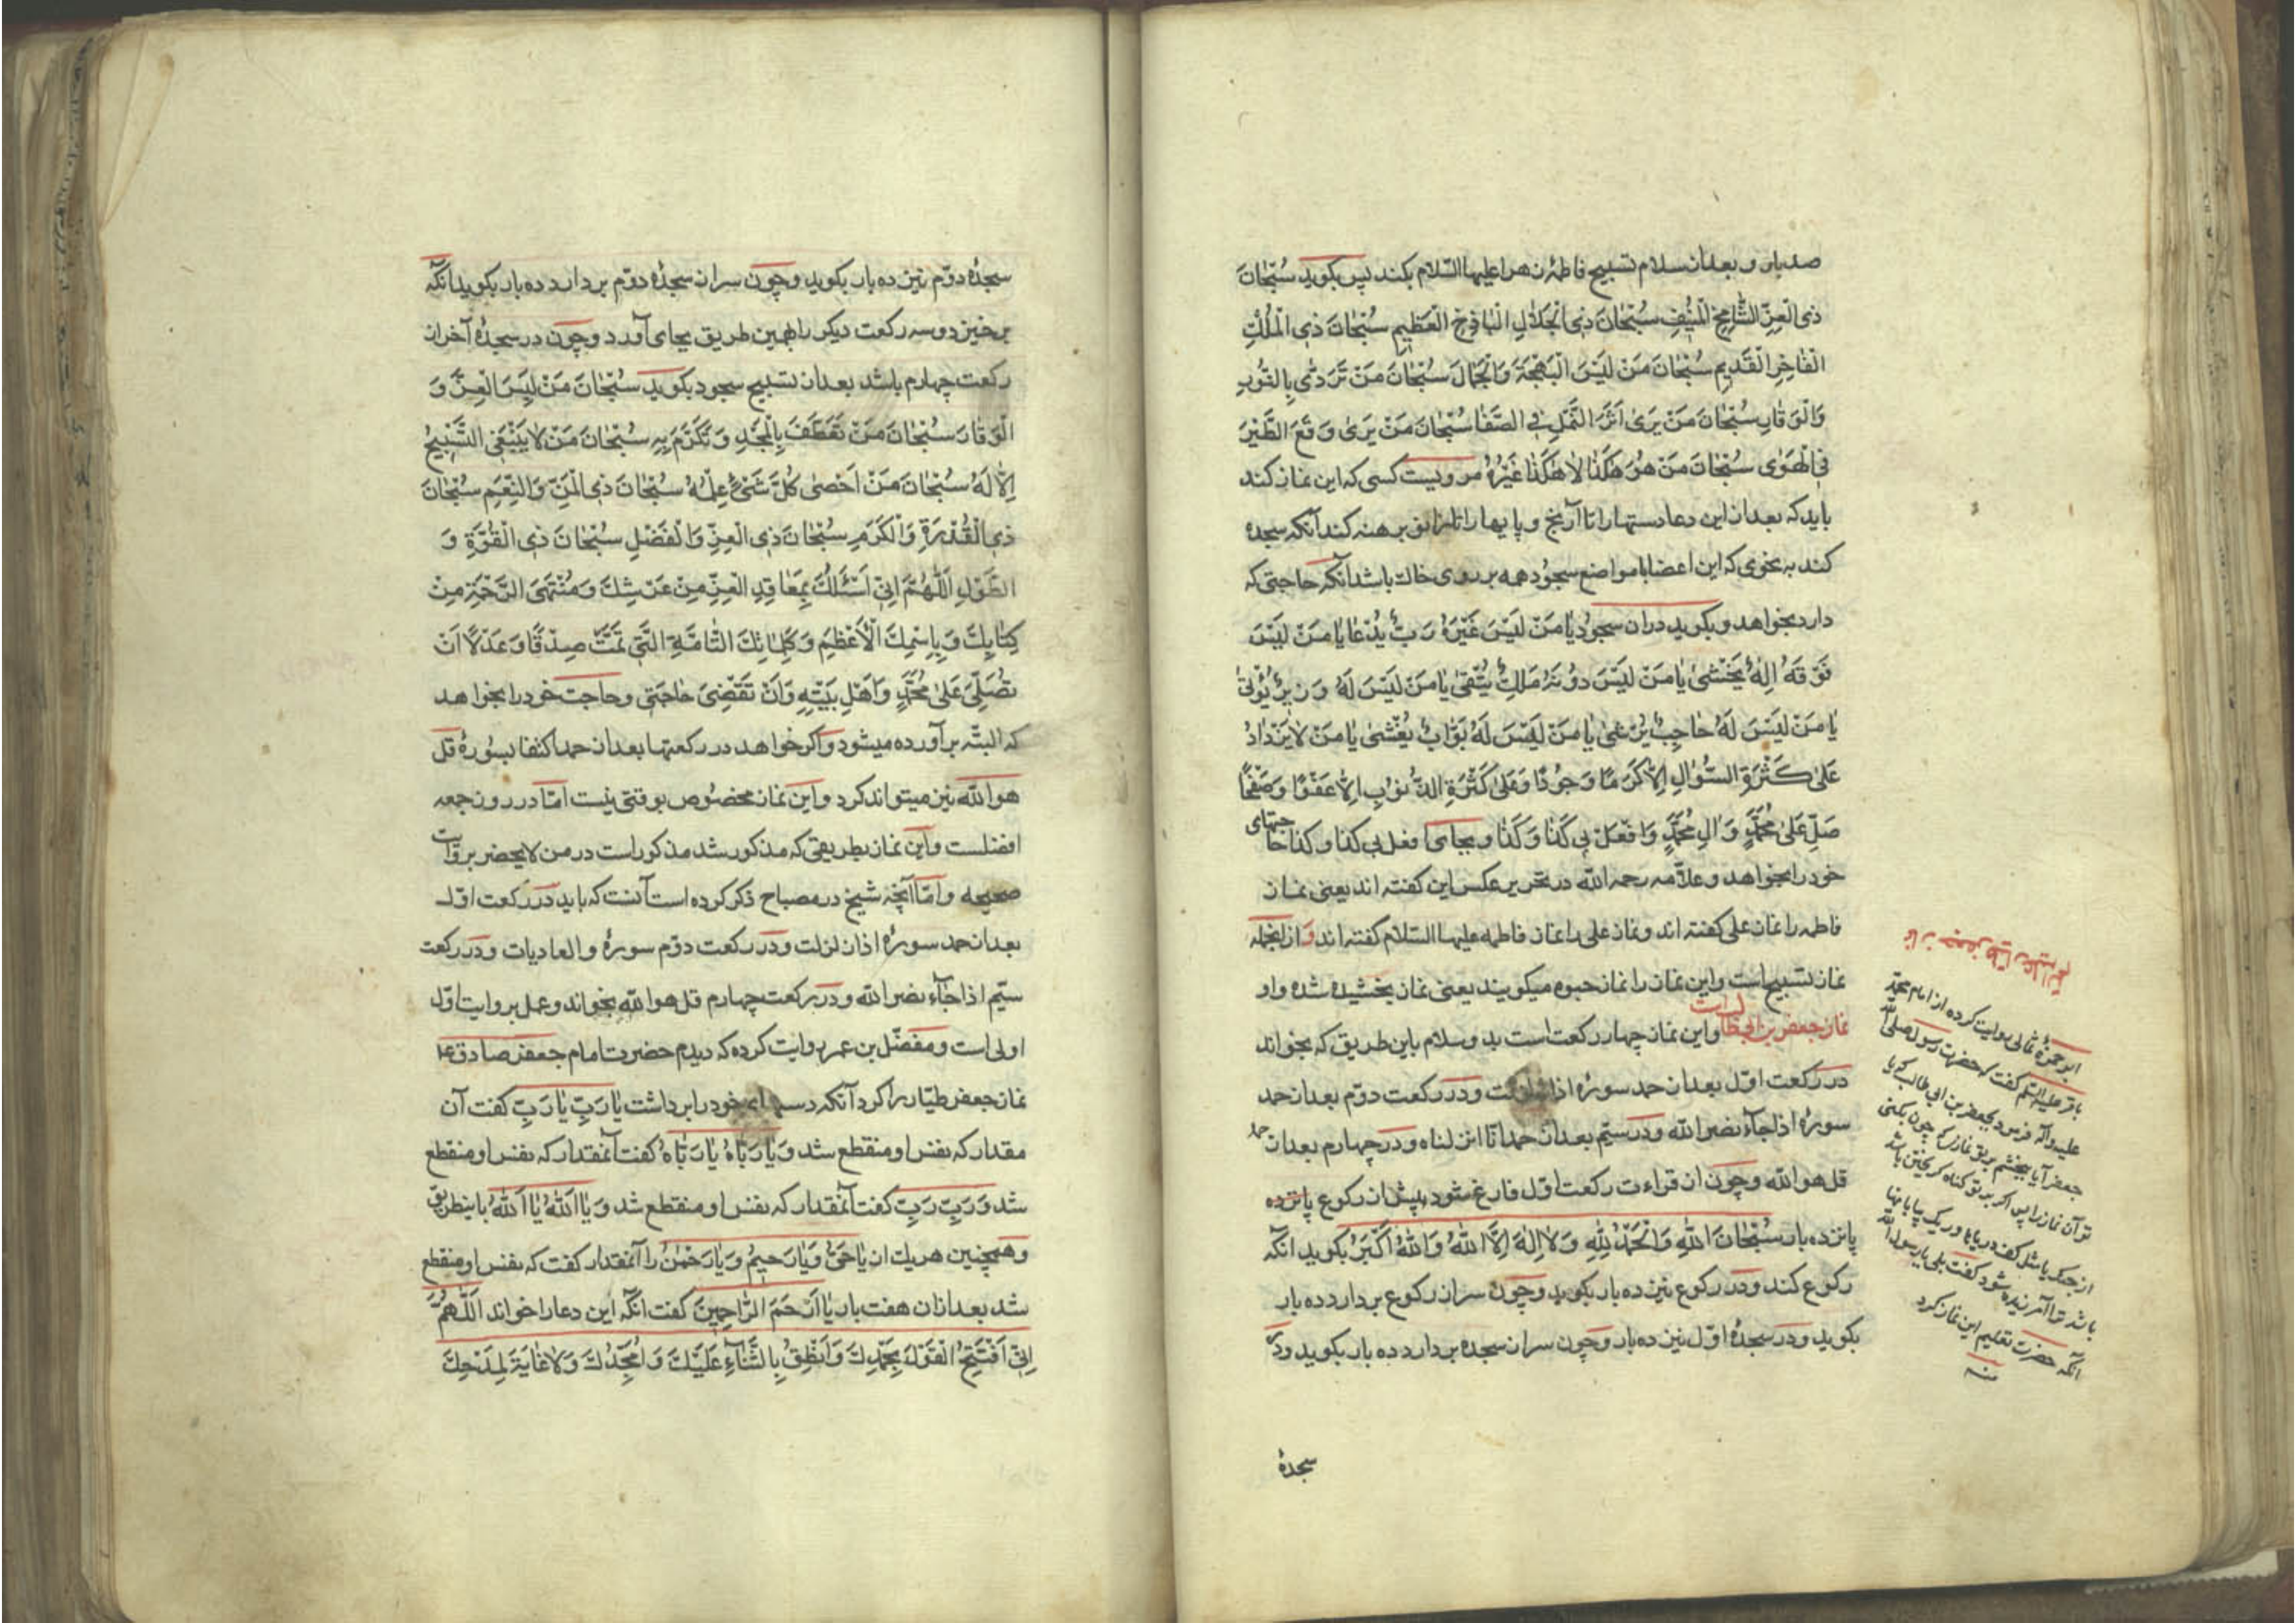 صد بار و بعد از سلام تسبیح فاطمهٔ زهرا علیها السّلام بکند پس بکوید سُبْحٰانَ
ذِی الْعِزِّ الشّٰامِخِ الْمُنیفِ سُبْحٰانَ ذِی الْجَلٰالِ الْبٰاذِخِ الْعَظیمِ سُبْحٰانَ ذِی الْمُلْكِ
الْفٰاخِرِ الْقَدیمِ سُبْحٰانَ مَنْ لَبِسَ الْبَهْجَةَ وَالْجَمٰالَ سُبْحٰانَ مَنْ تَرَدّٰى بِالنُّورِ
وَالْوَقٰارِ سُبْحٰانَ مَنْ یَرىٰ اَثَرَ النَّمْلِ فِی الصَّفٰا سُبْحٰانَ مَنْ یَرىٰ وَقَعَ الطَّیْرَ
فِی الْهَوٰى سُبْحٰانَ مَنْ هُوَ هٰكَذٰا لٰا هٰكَذٰا غَیْرُهُ مرویست کسی که این نماز کند
باید که بعد از این دعا دستها را تا آرنج و پایها را تا زانو برهنه کند آنکه سجده
کند به نحوی که این اعضا با مواضع سجود همه بر روی خاك باشد آنکه حاجتی که
دارد بخواهد و بکوید در ان سجود یٰا مَنْ لَیْسَ غَیْرَهُ رَبٌّ یُدْعٰا یٰا مَنْ لَیْسَ
فَوْقَهُ اِلٰهٌ یُخْشىٰ یٰا مَنْ لَیْسَ دُونَهُ مَلِكٌ یُتَّقىٰ یٰا مَنْ لَیْسَ لَهُ وَزیرٌ یُؤْتىٰ
یٰا مَنْ لَیْسَ لَهُ حٰاجِبٌ یُرْشىٰ یٰا مَنْ لَیْسَ لَهُ بَوّٰابٌ یُغْشىٰ یٰا مَنْ لٰا یَزْدٰادُ
عَلىٰ كَثْرَةِ السُّؤٰالِ اِلّٰا كَرَمًا وَجُودًا وَعَلىٰ كَثْرَةِ الذُّنُوبِ اِلّٰا عَفْوًا وَصَفْحًا
صَلِّ عَلىٰ مُحَمَّدٍ وَاٰلِ مُحَمَّدٍ وَافْعَلْ بی كَذٰا وَكَذٰا و بجای افعل بی کذا و کذا حاجتهای
خود را بخواهد و علّامه رحمه اللّه در تحریر عکس این کفته اند یعنی نماز
فاطمه را نماز علی کفته اند و نماز علی را نماز فاطمه علیها السّلام کفته اند و از انجمله
نماز تسبیح است و این نماز را نماز حبوه میکویند یعنی نماز بخشیده شده و او
نماز جعفر بن ابیطالب است و این نماز چهار رکعت است بدو سلام باین طریق که بخواند
در رکعت اوّل بعد از حمد سورهٔ اذا زلزلت و در رکعت دوّم بعد از حمد
سورهٔ اذا جآء نصر اللّه و در سیّم بعد از حمد انّا انزلناه و در چهارم بعد از حمد
قل هو اللّه و چون از قراءت رکعت اوّل فارغ شود پیش از رکوع پانزده
پانزده بار سُبْحٰانَ اللّٰهِ وَالْحَمْدُ لِلّٰهِ وَلٰا اِلٰهَ اِلَّا اللّٰهُ وَاللّٰهُ اَكْبَرُ بکوید انکه
رکوع کند و در رکوع نیز ده بار بکوید و چون سر از رکوع بردارد ده بار
بکوید و در سجدهٔ اوّل نیز ده بار و چون سر از سجده بردارد ده بار بکوید و در
سجدهٔ
ابو حمزهٔ ثمالی روایت کرده از امام محمّد
باقر علیه السّلم کفت که حضرت رسول صلی اللّه
علیه وآله فرمود بجعفر بن ابی طالب که یا
جعفر آیا ببخشم بر تو نمازی که چون بکنی
تو آن نماز را پس اکر بر تو کناه کریختن باشد
از جنك یا مثل کف دریاها و ریک بیابانها
باشد ترا آمرزیده شود کفت بلی یا رسول اللّه
انکه حضرت تعلیم این نماز کرد
منه
سجدهٔ دوّم نیز ده بار بکوید و چون سر از سجدهٔ دوّم بردارد ده بار بکوید انکه
برخیزد و سه رکعت دیکر را بهمین طریق بجای آورد و چون در سجدهٔ آخر از
رکعت چهارم باشد بعد از تسبیح سجود بکوید سُبْحٰانَ مَنْ لَبِسَ الْعِزَّ وَ
الْوَقٰارَ سُبْحٰانَ مَنْ تَعَطَّفَ بِالْمَجْدِ وَتَكَرَّمَ بِهِ سُبْحٰانَ مَنْ لٰا یَنْبَغِی التَّسْبیحُ
اِلّٰا لَهُ سُبْحٰانَ مَنْ اَحْصىٰ كُلَّ شَیْءٍ عِلْمُهُ سُبْحٰانَ ذِی الْمَنِّ وَالنِّعَمِ سُبْحٰانَ
ذِی الْقُدْرَةِ وَالْكَرَمِ سُبْحٰانَ ذِی الْعِزِّ وَالْفَضْلِ سُبْحٰانَ ذِی الْقُوَّةِ وَ
الطَّوْلِ اَللّٰهُمَّ اِنّی اَسْئَلُكَ بِمَعٰاقِدِ الْعِزِّ مِنْ عَرْشِكَ وَمُنْتَهَى الرَّحْمَةِ مِنْ
كِتٰابِكَ وَبِاِسْمِكَ الْاَعْظَمِ وَكَلِمٰاتِكَ التّٰامَّةِ الَّتی تَمَّتْ صِدْقًا وَعَدْلًا اَنْ
تُصَلِّیَ عَلىٰ مُحَمَّدٍ وَاَهْلِ بَیْتِهِ وَاَنْ تَقْضِیَ حٰاجَتی و حاجت خود را بخواهد
که البتّه برآورده میشود و اکر خواهد در رکعتها بعد از حمد اکتفا بسورهٔ قل
هو اللّه نیز میتواند کرد و این نماز مخصوص بوقتی نیست امّا در روز جمعه
افضلست و این نماز بطریقی که مذکور شد مذکور است در من لا یحضر بروایت
صحیحه و امّا آنچه شیخ در مصباح ذکر کرده است آنست که باید در رکعت اوّل
بعد از حمد سورهٔ اذا زلزلت و در رکعت دوّم سورهٔ والعادیات و در رکعت
سیّم اذا جآء نصر اللّه و در رکعت چهارم قل هو اللّه بخواند و عمل بروایت اوّل
اولی است و مفضّل بن عمر روایت کرده که دیدم حضرت امام جعفر صادق ع
نماز جعفر طیّار را کرد آنکه دستهای خود را برداشت یٰا رَبِّ یٰا رَبِّ کفت آن
مقدار که نفس او منقطع شد وَیٰا رَبّٰاهُ یٰا رَبّٰاهُ کفت آنمقدار که نفس او منقطع
شد وَرَبِّ رَبِّ کفت آنمقدار که نفس او منقطع شد وَیٰا اَللّٰهُ یٰا اَللّٰهُ باینطریق
و همچنین هریك از یٰا حَیُّ وَیٰا رَحیمُ وَیٰا رَحْمٰنُ را آنمقدار کفت که نفس او منقطع
شد بعد از ان هفت بار یٰا اَرْحَمَ الرّٰاحِمینَ کفت انکه این دعا را خواند اَللّٰهُمَّ
اِنّی اَفْتَتِحُ الْقَوْلَ بِحَمْدِكَ وَاَنْطِقُ بِالثَّنٰآءِ عَلَیْكَ وَاُمَجِّدُكَ وَلٰا غٰایَةَ لِمَدْحِكَ